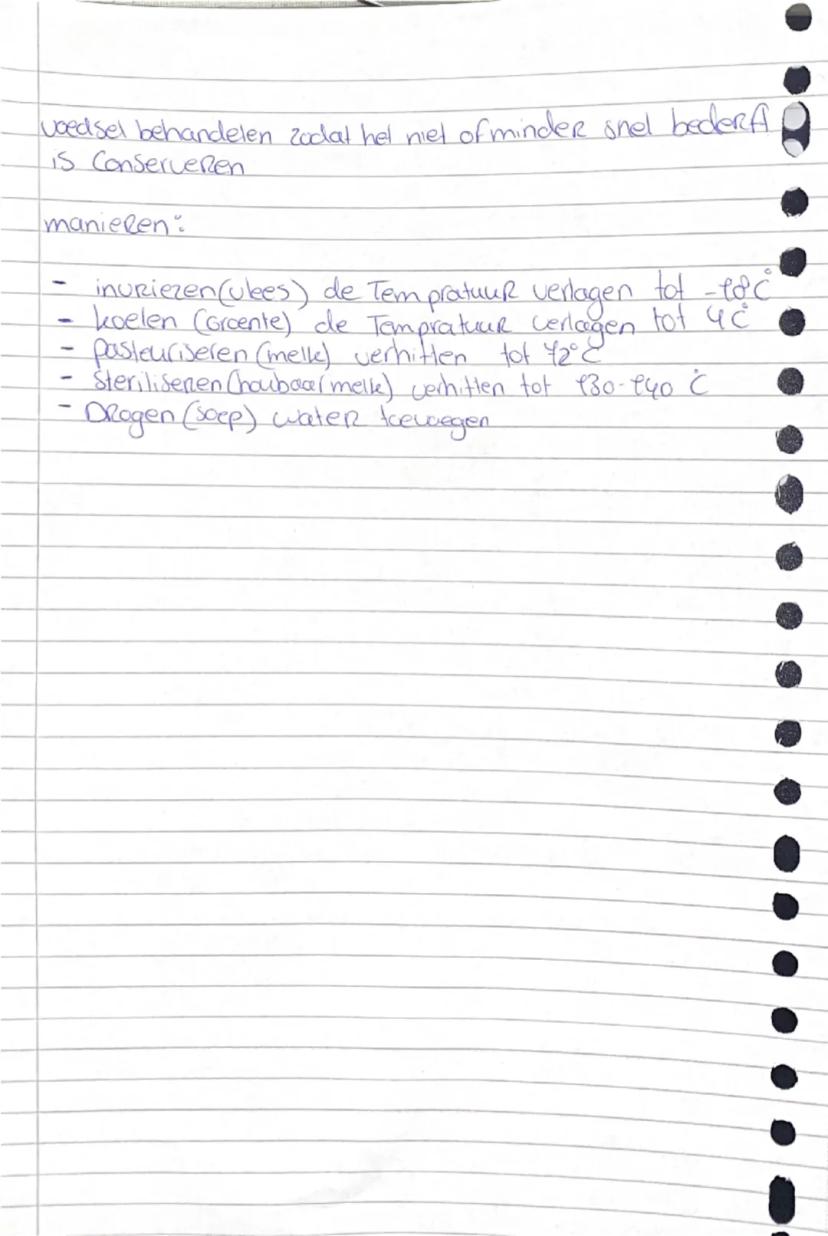 voedsel behandelen zodat het niet of minder snel bederft
is Conserveren
manieren:
- invriezen (vlees) de Tempratuur verlagen tot -18°C
- koelen (Groente) de Tempratuur verlagen tot 4°C
- pasteuriseren (melk) verhitten tot 72°C
- Steriliseren (houbaar melk) verhitten tot 130-140 °C
- Drogen (soep) water toevoegen